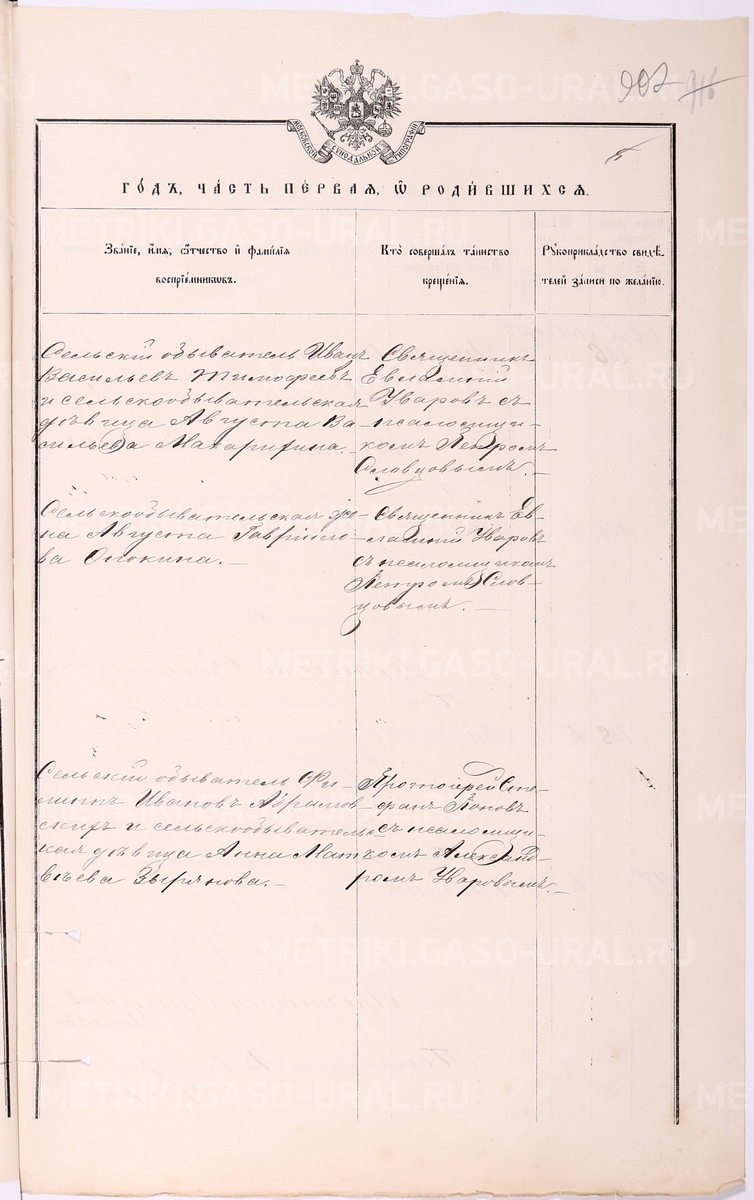 907 916
МОСКОВСКОЙ СѴНОДАЛЬНОЙ ТИПОГРАФІИ
5
ГО́ДЪ, ЧА́СТЬ ПЕ́РВАЯ, Ѽ РОДИ́ВШИХСЯ.
Зва́нїе, и҆́мя, ѻ҆́тчество и҆ фами́лїя
воспрїе́мникѡвъ.
Кто̀ соверша́лъ та́инство
креще́нїя.
Рꙋкоприкла́дство свидѣ́-
телей за́писи по жела́нїю.
Сельскій обыватель Иванъ
Васильевъ Тимофеевъ
и сельскообывательская
дѣвица Августа Ва-
сильева Макарихина.
Священникъ
Евлампій
Уваровъ съ
псаломщи-
комъ Петромъ
Словцовымъ.
Сельскообывательская же-
на Августа Гаврило-
ва Опокина.
Священникъ Ев-
лампій Уваровъ
съ псаломщикомъ
Петромъ Слов-
цовымъ.
Сельскій обыватель Фи-
липпъ Ивановъ Абрамов-
скихъ и сельскообыватель-
ская дѣвица Анна Мат-
вѣева Зырянова.
Протоіерей Сте-
фанъ Поповъ
съ псаломщи-
комъ Александ-
ромъ Уваровымъ.
METRIKI.GASO-URAL.RU